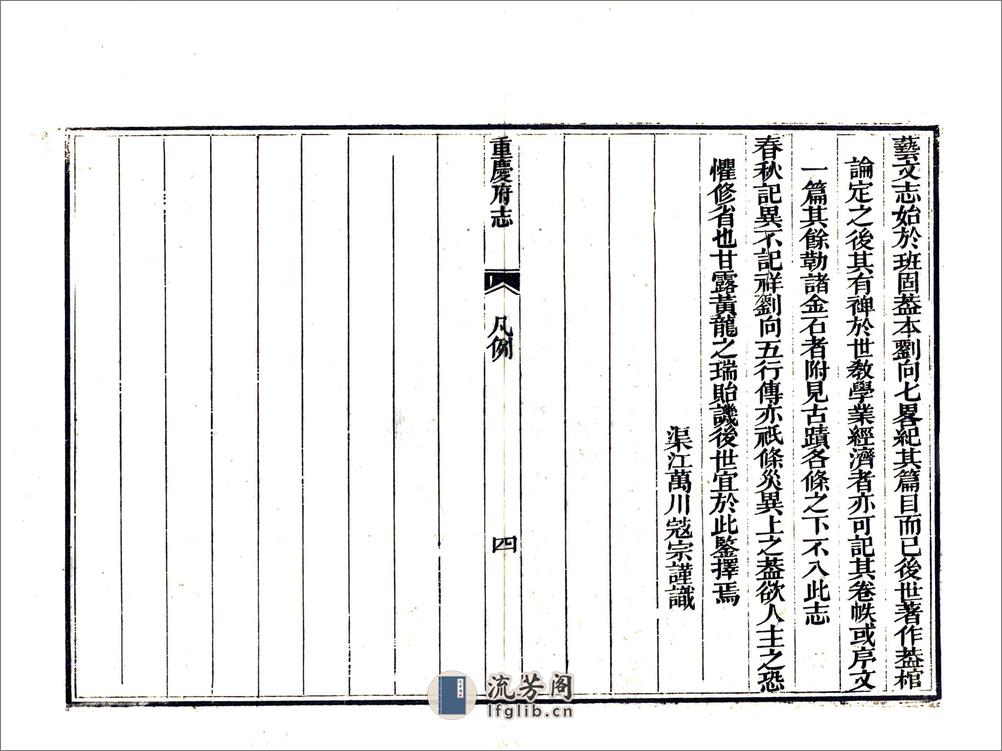 藝文志始於班固葢本劉向七畧紀其篇目而已後世著作葢棺
論定之後其有裨於世敎學業經濟者亦可記其卷帙或序文
一篇其餘勒諸金石者附見古蹟各條之下不入此志
春秋記異不記祥劉向五行傳亦祇條災異上之葢欲人主之恐
懼修省也甘露黃龍之瑞貽譏後世宜於此鑒擇焉
渠江萬川寇宗謹識
重慶府志
凡例
四
流芳阁
lfglib.cn